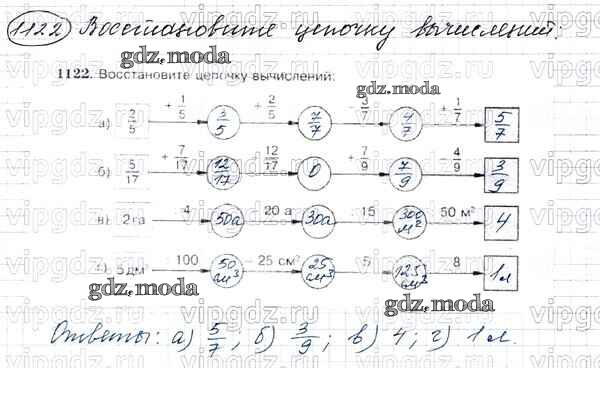 1122 Восстановите цепочку вычислений:
gdz.moda
1122. Восстановите цепочку вычислений:
gdz.moda
а) 2/5 + 1/5 3/5 + 2/5 7/7 - 3/7 4/7 + 1/7 5/7
б) 5/17 + 7/17 12/17 - 12/17 0 + 7/9 7/9 - 4/9 3/9
в) 2 га : 4 50а - 20 а 30а : 15 300 м² 50 м² 4
г) 5 дм : 100 50 см³ 25 см³ 25 см³ 5 125 см³ 8 1л
gdz.moda
gdz.moda
Ответы: а) 5/7; б) 3/9; в) 4; г) 1 л.